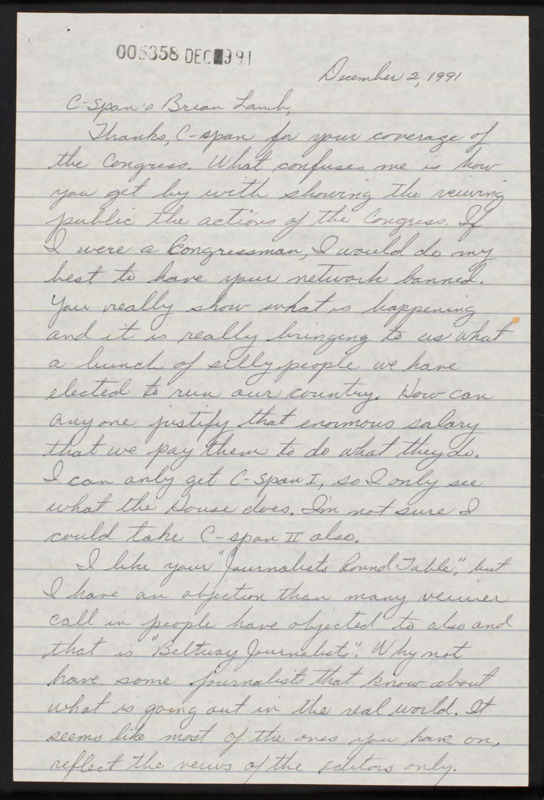 005358 DEC 991
December 2, 1991
C-Span's Brian Lamb,
Thanks, C-span for your coverage of
the Congress. What confuses me is how
you get by with showing the veiwing
public the actions of the Congress. If
I were a Congressman, I would do my
best to have your network banned.
You really show what is happening
and it is really bringing to us what
a bunch of silly people we have
elected to run our country. How can
anyone justify that enormous salary
that we pay them to do what they do.
I can only get C-Span I, so I only see
what the House does. I'm not sure I
could take C-span II also.
I like your "Journalists Round Table", but
I have an objection than many veiwer
call in people have objected to also and
that is "Beltway Journalists". Why not
have some journalists that know about
what is going out in the real world. It
seems like most of the ones you have on,
reflect the veiws of the editors only.